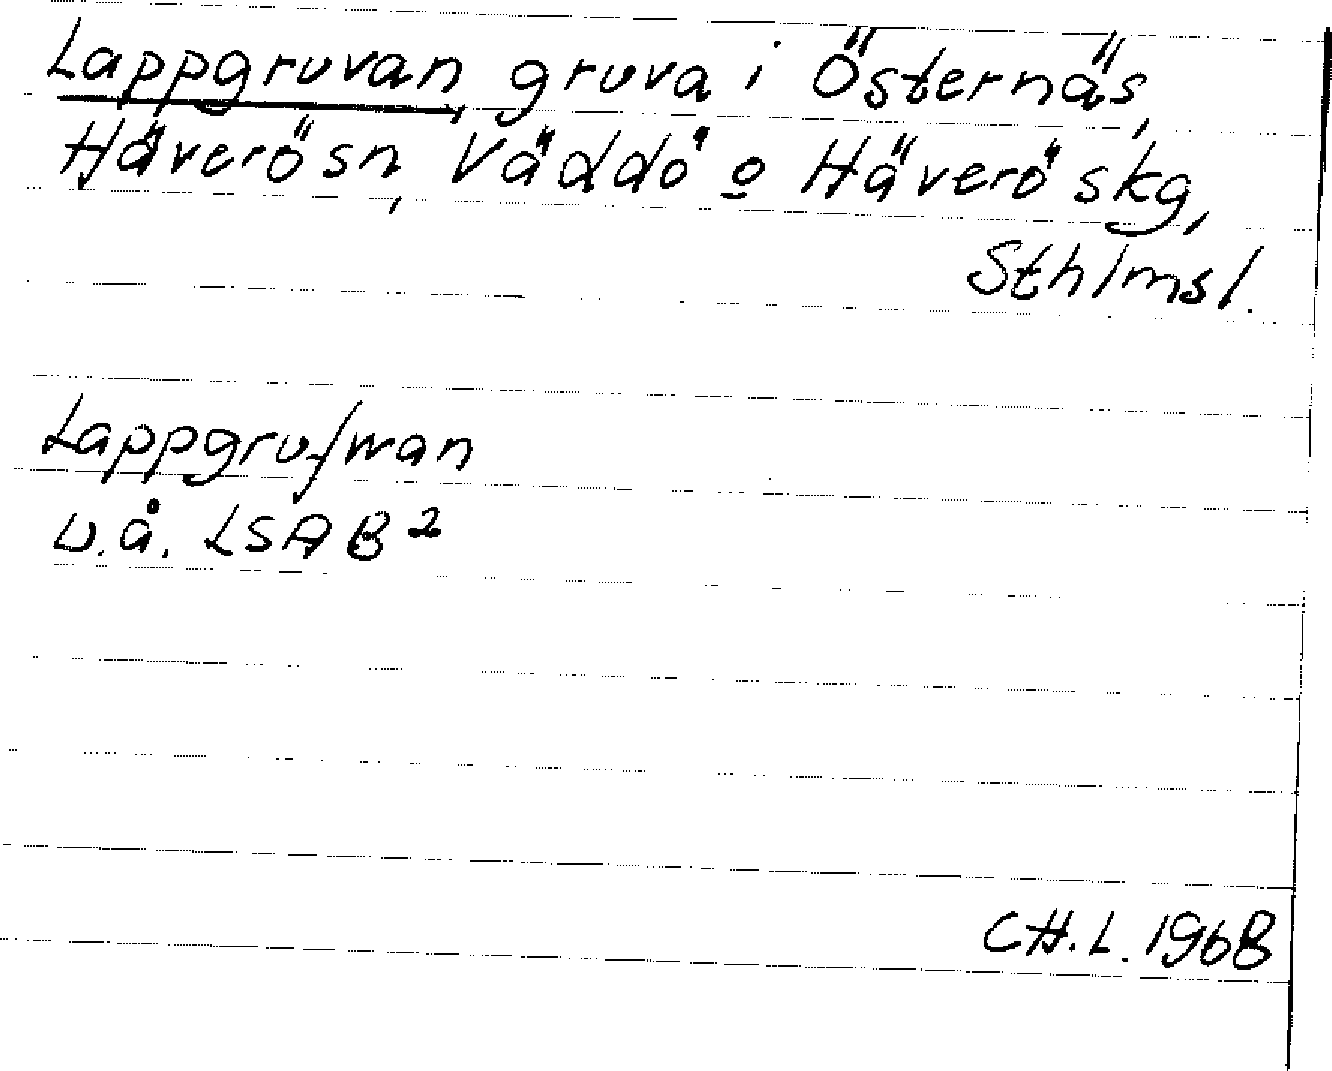 Lappgruvan, gruva i Östernäs,
Häverösn, Väddö o Häverö skg,
Sthlmsl.
Lappgrufwan
u.å. LSA B2
CH.L. 1968